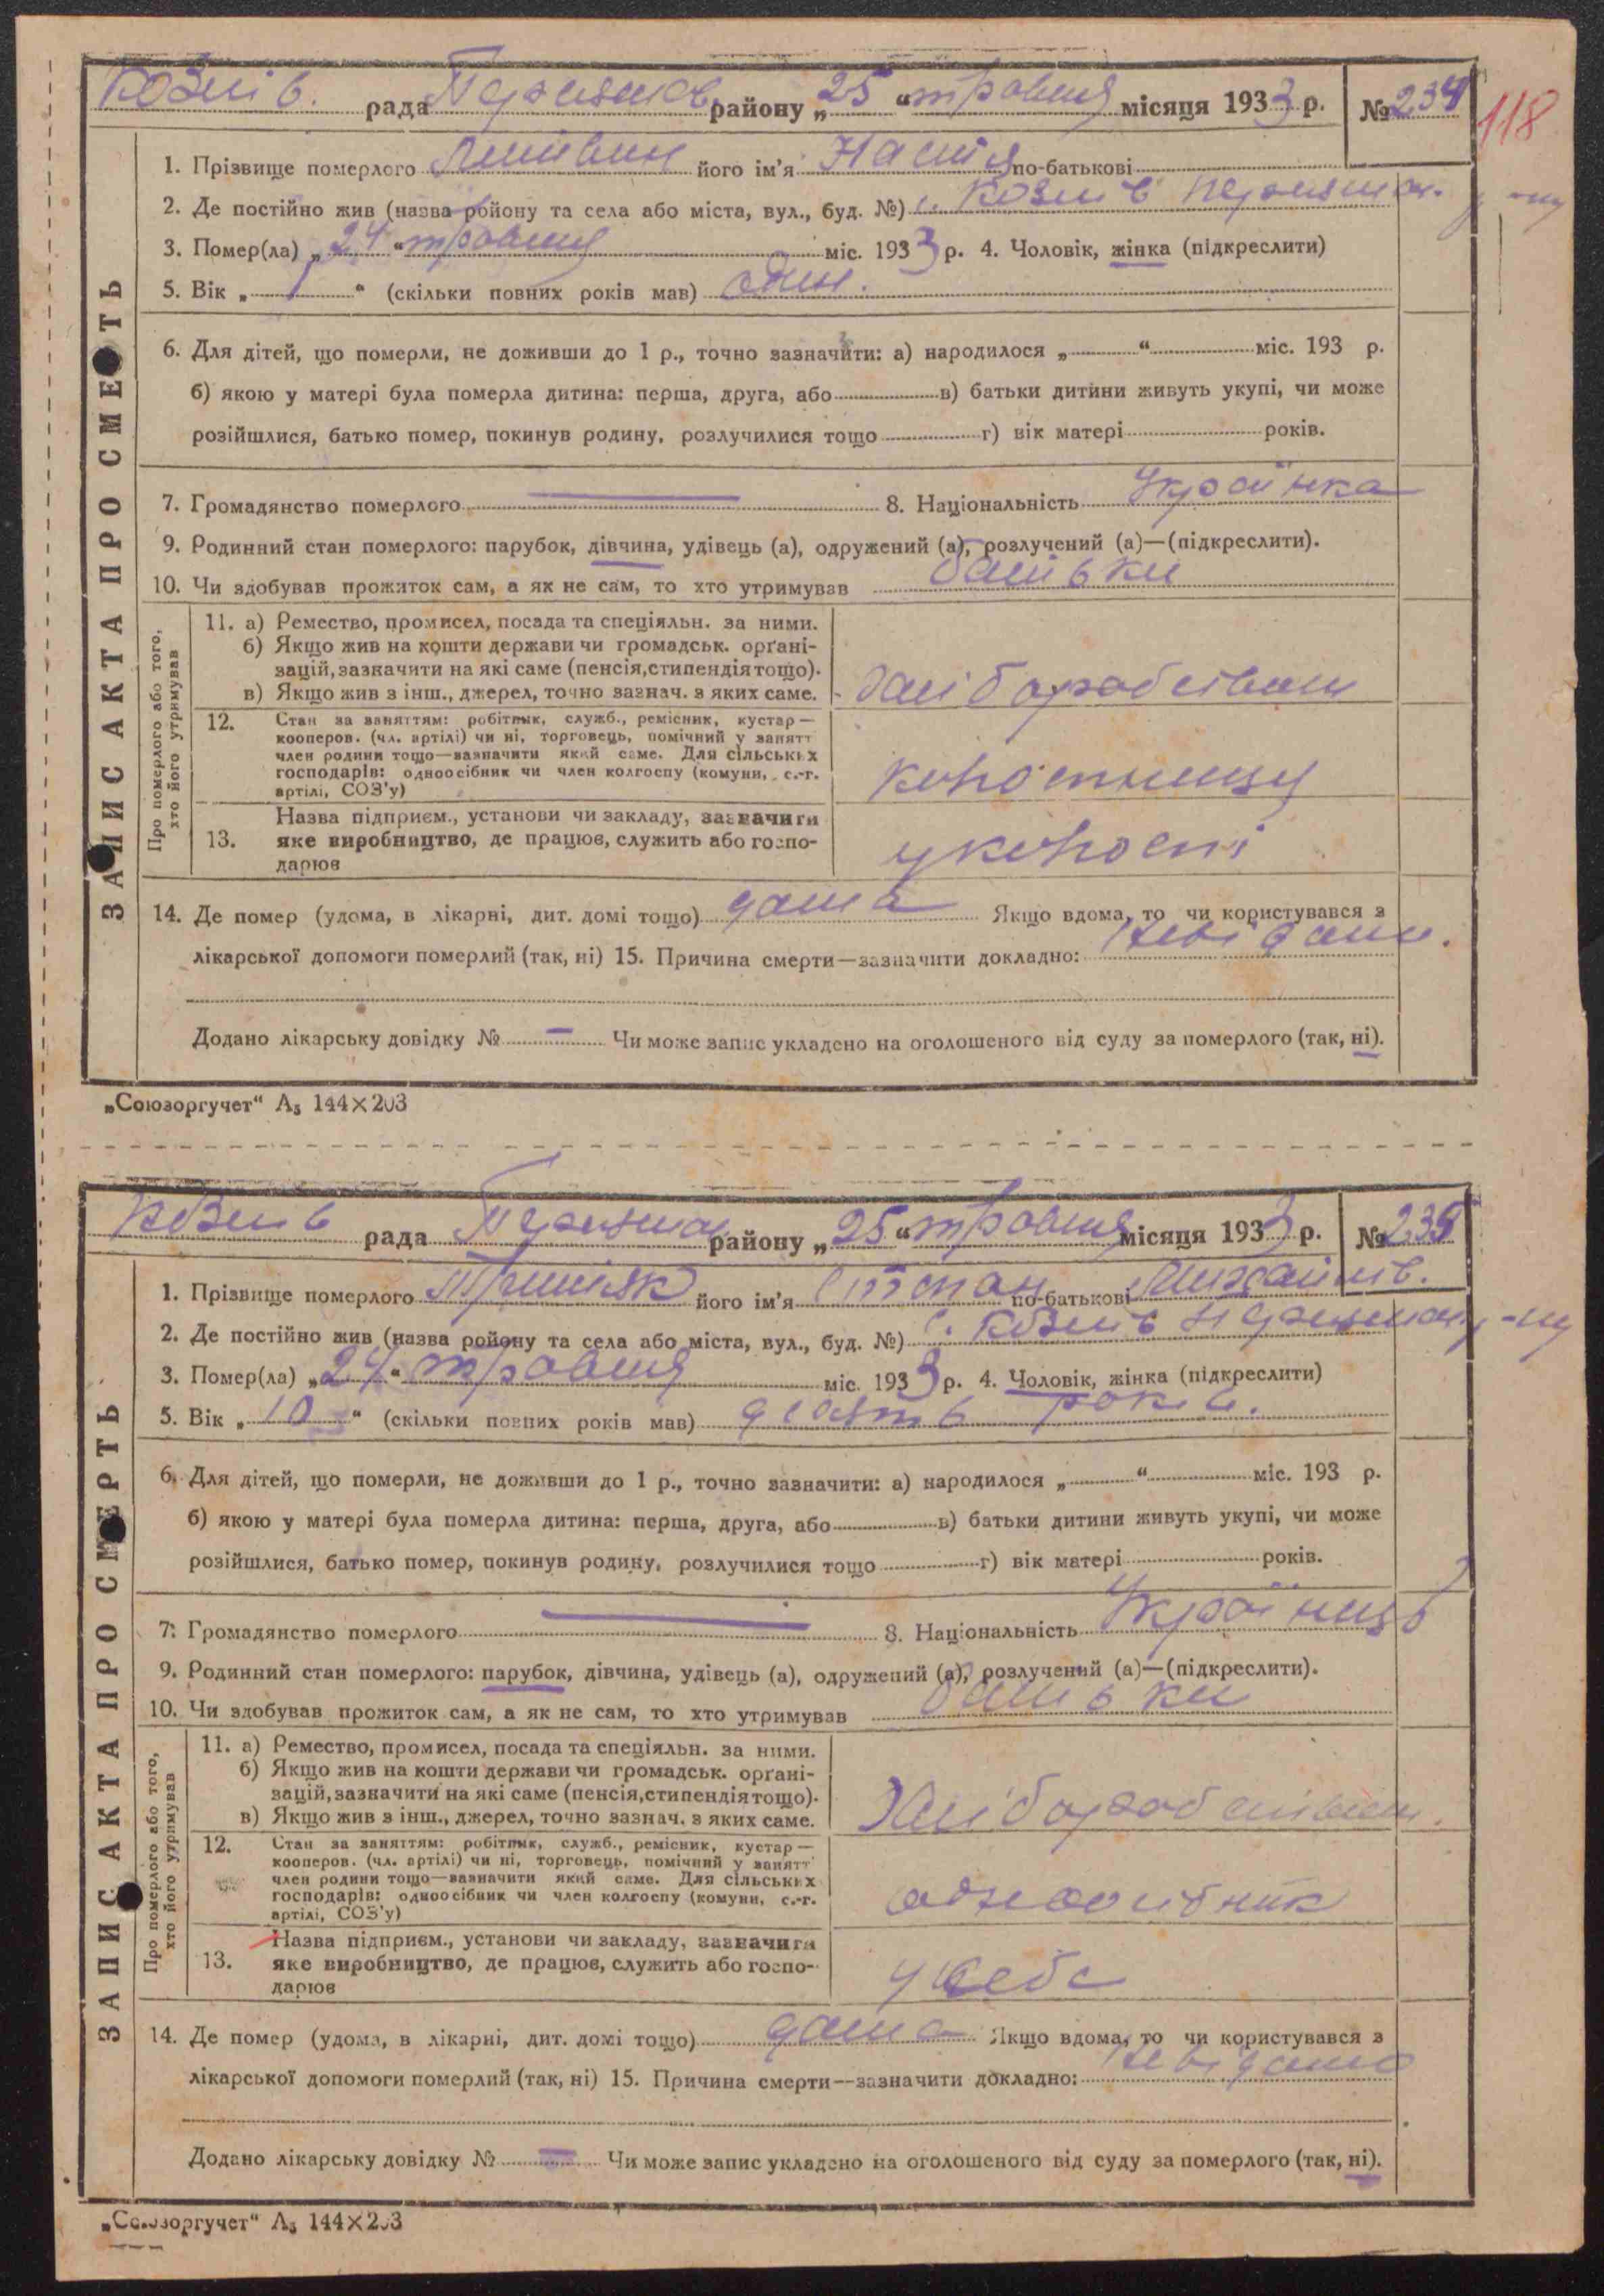 рада району „25“ травня місяця 1933 р. № 234
118
1. Прізвище померлого Литвин його ім'я Настя по-батькові
2. Де постійно жив (назва району та села або міста, вул., буд. №) с.
3. Помер(ла) „24“ травня міс. 1933 р. 4. Чоловік, жінка (підкреслити)
5. Вік „1“ (скільки повних років мав) один.
6. Для дітей, що померли, не доживши до 1 р., точно зазначити: а) народилося „ “ міс. 193 р.
б) якою у матері була померла дитина: перша, друга, або в) батьки дитини живуть укупі, чи може
розійшлися, батько помер, покинув родину, розлучилися тощо г) вік матері років.
7. Громадянство померлого — 8. Національність Українка
9. Родинний стан померлого: парубок, дівчина, удівець (а), одружений (а), розлучений (а)—(підкреслити).
10. Чи здобував прожиток сам, а як не сам, то хто утримував батьки
ЗАПИС АКТА ПРО СМЕРТЬ
Про померлого або того,
хто його утримував
11. а) Ремество, промисел, посада та спеціяльн. за ними.
б) Якщо жив на кошти держави чи громадськ. орґані-
зацій, зазначити на які саме (пенсія, стипендія тощо).
в) Якщо жив з інш., джерел, точно зазнач. з яких саме.
12. Стан за заняттям: робітник, служб., ремісник, кустар—
кооперов. (чл. артілі) чи ні, торговець, помічний у занятт
член родини тощо—зазначити який саме. Для сільських
господарів: одноосібник чи член колгоспу (комуни, с.-г.
артілі, СОЗ'у)
13. Назва підприєм., установи чи закладу, зазначити
яке виробництво, де працює, служить або госпо-
дарює
14. Де помер (удома, в лікарні, дит. домі тощо) дома Якщо вдома, то чи користувався з
лікарської допомоги померлий (так, ні) 15. Причина смерти—зазначити докладно: Невідомо.
Додано лікарську довідку № — Чи може запис укладено на оголошеного від суду за померлого (так, ні).
„Союзоргучет“ А₅ 144×203
рада району „25“ травня місяця 1933 р. № 235
1. Прізвище померлого його ім'я Степан по-батькові Михайлов.
2. Де постійно жив (назва району та села або міста, вул., буд. №) с.
3. Помер(ла) „24“ травня міс. 1933 р. 4. Чоловік, жінка (підкреслити)
5. Вік „10“ (скільки повних років мав) десять років.
6. Для дітей, що померли, не доживши до 1 р., точно зазначити: а) народилося „ “ міс. 193 р.
б) якою у матері була померла дитина: перша, друга, або в) батьки дитини живуть укупі, чи може
розійшлися, батько помер, покинув родину, розлучилися тощо г) вік матері років.
7. Громадянство померлого — 8. Національність Українець
9. Родинний стан померлого: парубок, дівчина, удівець (а), одружений (а), розлучений (а)—(підкреслити).
10. Чи здобував прожиток сам, а як не сам, то хто утримував батьки
ЗАПИС АКТА ПРО СМЕРТЬ
Про померлого або того,
хто його утримував
11. а) Ремество, промисел, посада та спеціяльн. за ними.
б) Якщо жив на кошти держави чи громадськ. орґані-
зацій, зазначити на які саме (пенсія, стипендія тощо).
в) Якщо жив з інш., джерел, точно зазнач. з яких саме.
12. Стан за заняттям: робітник, служб., ремісник, кустар—
кооперов. (чл. артілі) чи ні, торговець, помічний у занятт
член родини тощо—зазначити який саме. Для сільських
господарів: одноосібник чи член колгоспу (комуни, с.-г.
артілі, СОЗ'у)
одноосібник
13. Назва підприєм., установи чи закладу, зазначити
яке виробництво, де працює, служить або госпо-
дарює
у себе
14. Де помер (удома, в лікарні, дит. домі тощо) дома Якщо вдома, то чи користувався з
лікарської допомоги померлий (так, ні) 15. Причина смерти—зазначити докладно: Невідомо
Додано лікарську довідку № — Чи може запис укладено на оголошеного від суду за померлого (так, ні).
„Союзоргучет“ А₅ 144×203